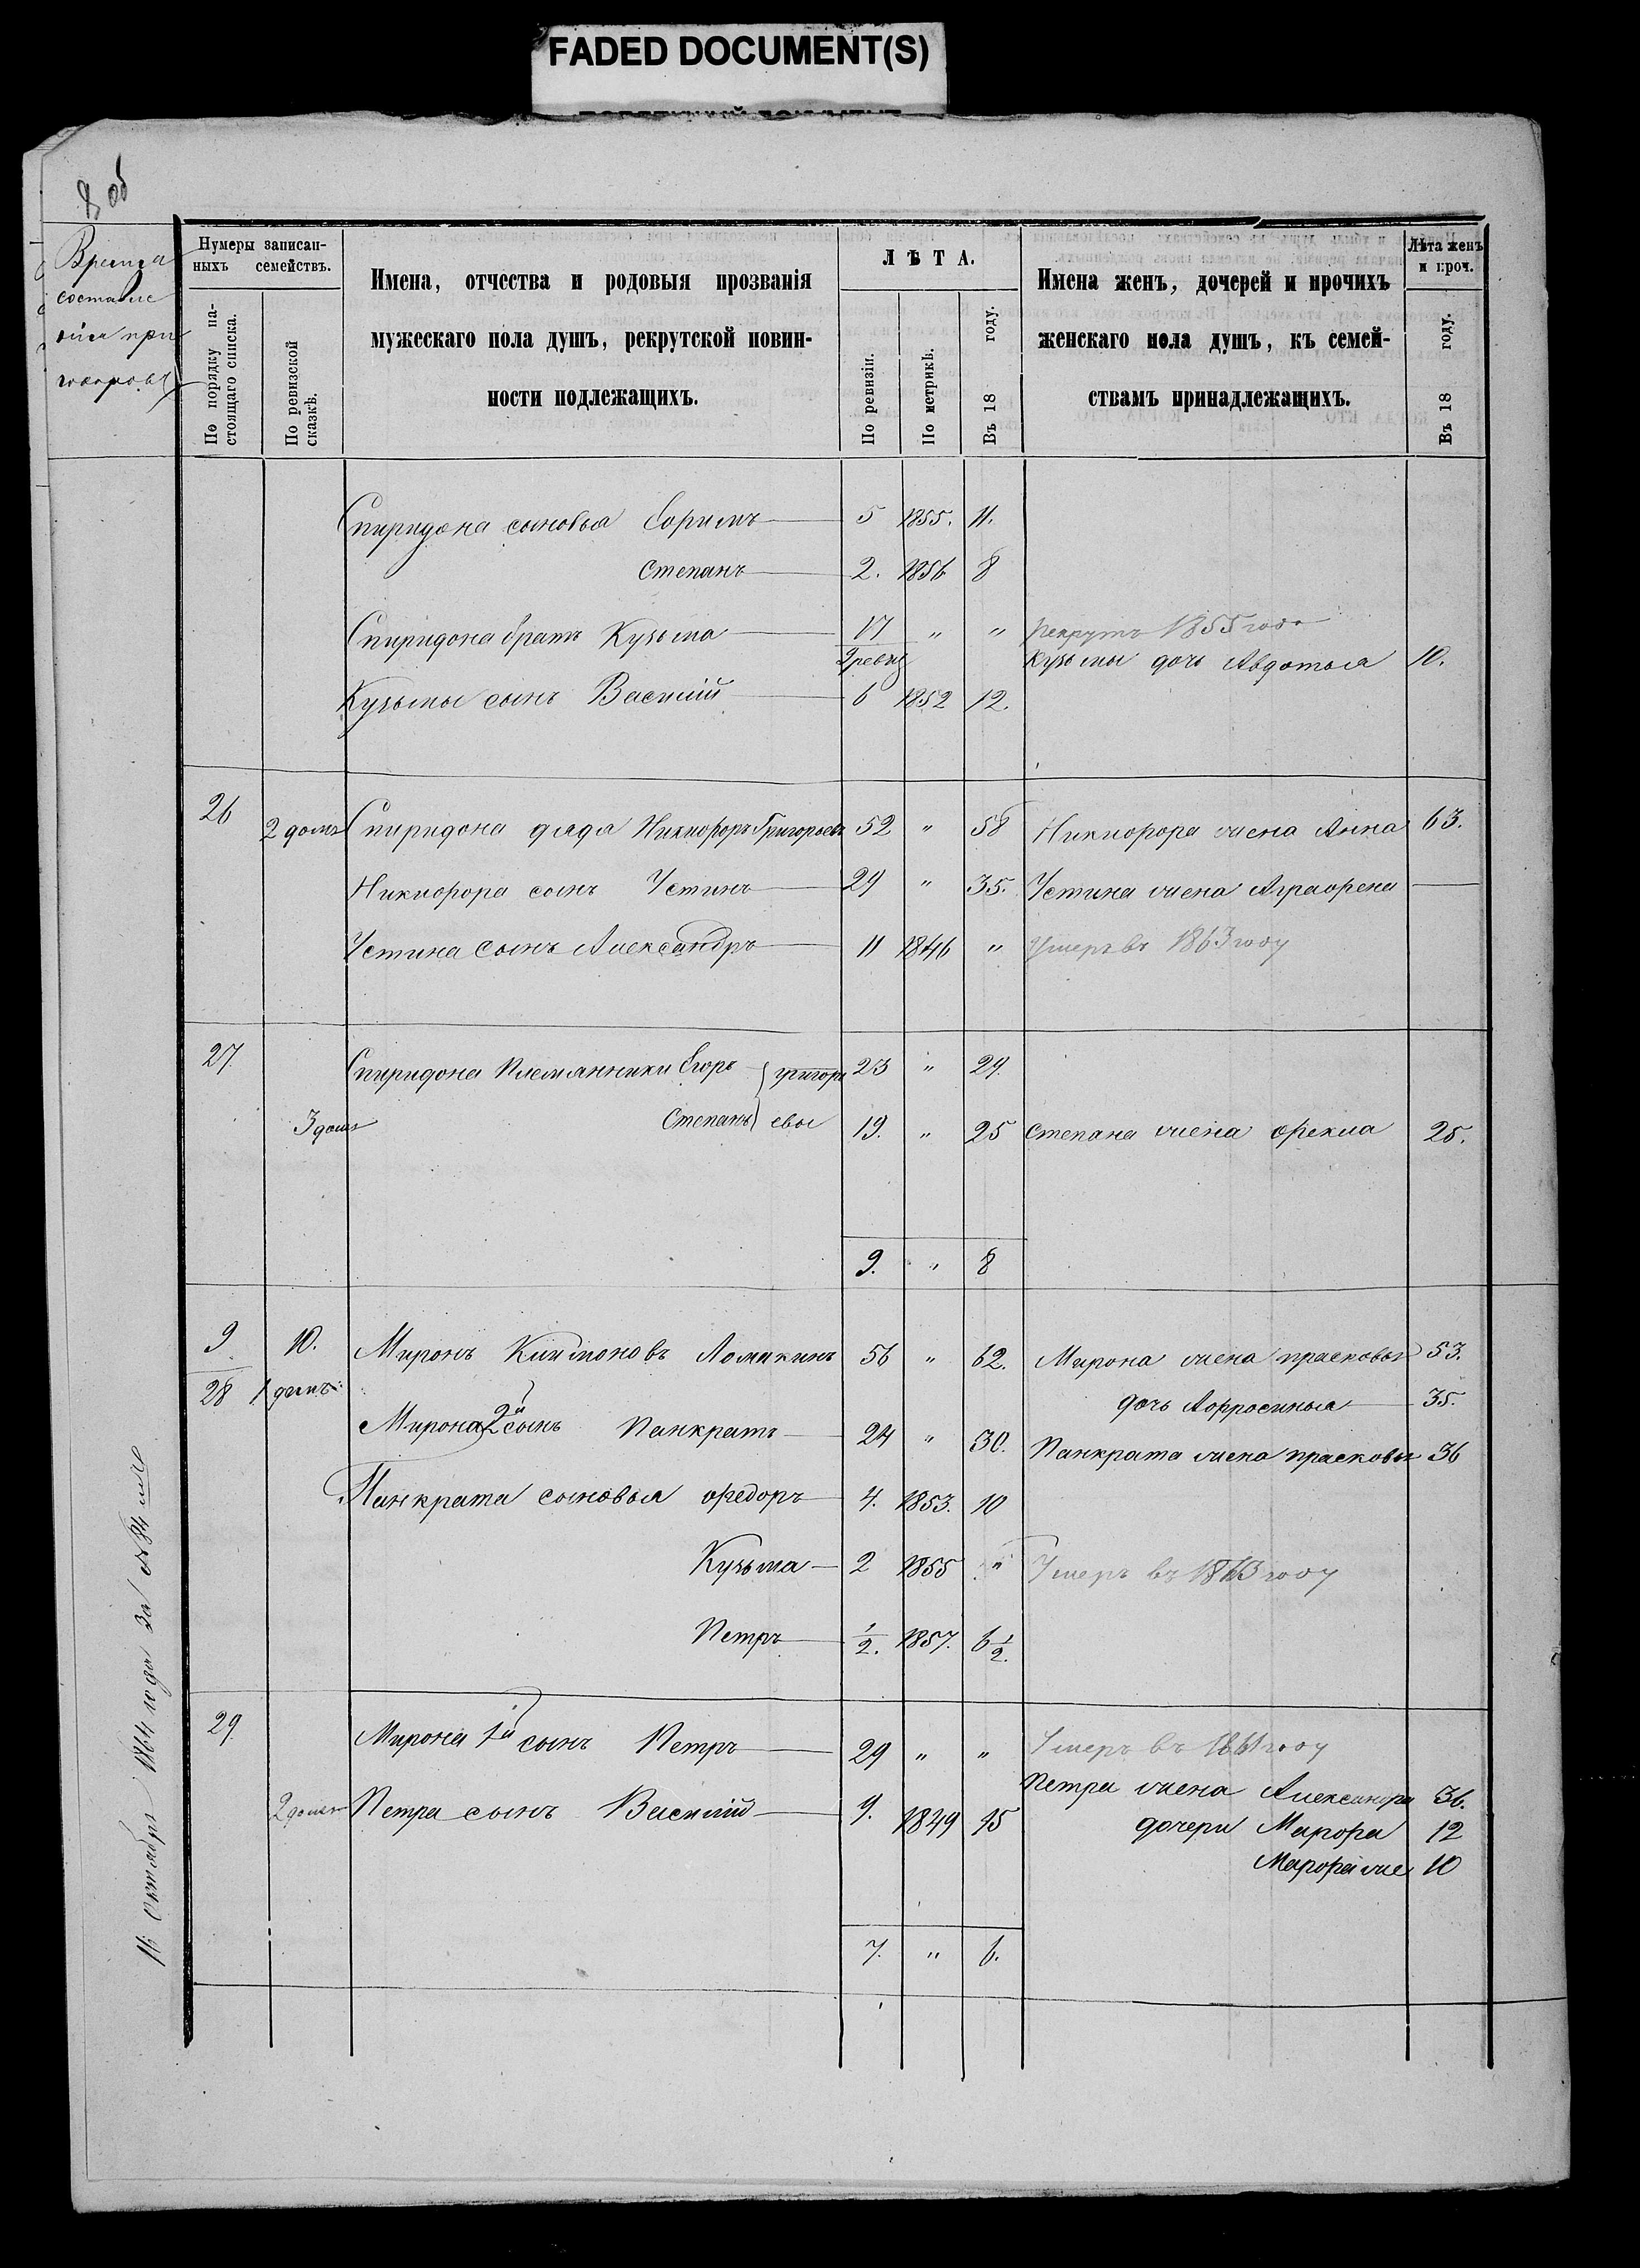 FADED DOCUMENT(S)
об
Время
составле
нія при
говоровъ
Нумеры записан-
ныхъ семействъ.
По порядку на-
стоящаго списка.
По ревизской
сказкѣ.
Имена, отчества и родовыя прозванія
мужескаго пола душъ, рекрутской повин-
ности подлежащихъ.
ЛѢТА.
По ревизіи.
По метрикѣ.
Въ 18 году.
Имена женъ, дочерей и прочихъ
женскаго пола душъ, къ семей-
ствамъ принадлежащихъ.
Лѣта женъ
и проч.
Въ 18 году.
Спиридона сыновья Ефримъ 5 1855. 11.
Степанъ 2. 1856 8
Спиридона братъ Кузьма 17 " " рекрутъ 1855 года
Кузьмы дочь Авдотья 10.
Кузьмы сынъ Василій 6 1852 12.
26 2 домъ Спиридона дядя Никифоръ Григорьевъ 52 " 58 Никифора жена Анна 63.
Никифора сынъ Устинъ 29 " 35. Устина жена Аграфена —
Устина сынъ Александръ 11 1846 " Умеръ въ 1863 году
27. Спиридона племянники Егоръ григорь 23 " 29.
3 домъ Степанъ евы 19. " 25 Степана жена Фекла 25.
9. " 8
9 10. Миронъ Климоновъ Ломакинъ 56 " 62. Мирона жена прасковья 53.
28 1 домъ дочь Афросинья 35.
Мирона 2й сынъ Панкратъ 24 " 30. Панкрата жена прасковья 36
Панкрата сыновья Федоръ 4. 1853. 10
Кузьма 2 1855 " Умеръ въ 1863 году
Петръ 1/2. 1857. 6 1/2.
29. Мирона 1й сынъ Петръ 29 " " Умеръ въ 1861 году
Петра жена Александра 36.
2 домъ Петра сынъ Василій 9. 1849 15 дочери Марфа 12
Марфа же 10
7. " 6.
16 октября 1864 года за №84